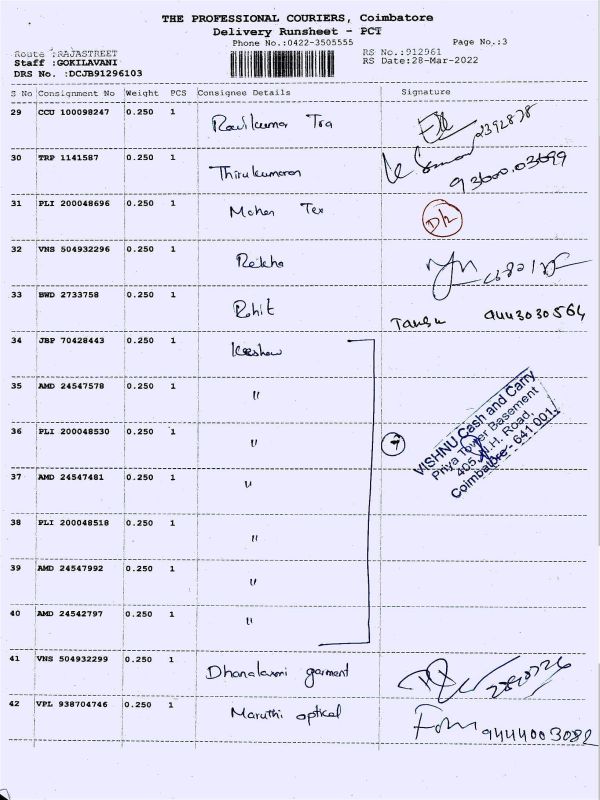 THE PROFESSIONAL COURIERS, Coimbatore
Delivery Runsheet - PCT
Phone No.:0422-3505555
Page No.:3
Route :RAJASTREET
RS No.:912961
Staff :GOKILAVANI
RS Date:28-Mar-2022
DRS No. :DCJB91296103
S No Consignment No Weight PCS Consignee Details Signature
29 CCU 100098247 0.250 1 Ravikumar Tra 2392878
30 TRP 1141587 0.250 1 Thirukumaran 93600.03699
31 PLI 200048696 0.250 1 Mohan Tex D/2
32 VNS 504932296 0.250 1 Rekha
33 BWD 2733758 0.250 1 Rohit 9443030564
34 JBP 70428443 0.250 1 Keeshav
35 AMD 24547578 0.250 1 "
36 PLI 200048530 0.250 1 " 7
37 AMD 24547481 0.250 1 "
38 PLI 200048518 0.250 1 "
39 AMD 24547992 0.250 1 "
40 AMD 24542797 0.250 1 "
VISHNU Cash and Carry
Priya Tower Basement
405, N.H. Road,
Coimbatore - 641 001.
41 VNS 504932299 0.250 1 Dhanalaxmi garment
42 VPL 938704746 0.250 1 Maruthi optical 9444003082